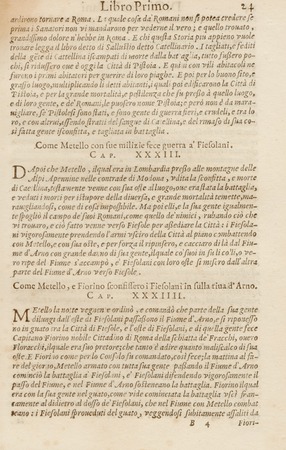 Libro Primo. 24
ardirono tornare a Roma. Le quale cosa da Romani non si potea credere se
prima i Sanatori non vi mandarono per vederne il vero; e quello trouato,
grandissimo dolore n'hebbe in Roma. E chi questa Storia piu appieno vuole
trouare legga il libro detto di Sallustio detto Catellinario. I tagliati, e fediti
della gente di Catellina iscampati di morte dalla battaglia, tutto fussero pochi,
si ridussero oue è oggi la Città di Pistoia. E qui con vili abitacoli ne
furono i primi abitatori per guerire di loro piaghe. E poi per lo buono sito, e
grasso luogo, multiplicando li detti abitanti, i quali poi edificarono la Città di
Pistoia, e per la grande mortalità, e pestilenza che fu presso a quello luogo,
e di loro gente, e de' Romani, le puosero nome Pistoia; e però non è da marauigliare,
se i Pistolesi sono stati, e sono gente di guerra fieri, e crudeli, e tra loro,
e con altrui, essendo stratti del sangue di Catellina, e del rimaso di sua così
fatta gente sconfitta, e tagliata in battaglia.
Come Metello con sue milizie fece guerra a' Fiesolani.
CAP. XXXIII.
DApoi che Metello, il qual era in Lombardia presso alle montagne delle
Alpi Apennine nelle contrade di Modona, vdita la sconfitta, e morte
di Catellina, tostamente venne con sua oste al luogo, oue era stata la battaglia,
e veduti i morti per istupore della diuersa, e grande mortalità temette, marauigliandosi,
come di cosa impossibile. Ma poi elli, e la sua gente igualmente
spogliò il campo de' suoi Romani, come quello de' nimici, rubando ciò che
vi trouaro, e ciò fatto venne verso Fiesole per assediare la Città. I Fiesolani
vigorosamente prendendo l'armi vsciro della Città al piano, combattendo
con Metello, e con sua oste, e per forza il ripinsero, e cacciaro di là dal Fiume
d'Arno con grande danno di sua gente, il quale co' suoi in su i colli, o vero
ripe del Fiume s'accampò, e' Fiesolani con loro oste si misero dall'altra
parte del Fiume d'Arno verso Fiesole.
Come Metello, e Fiorino sconfissero i Fiesolani in sulla riua d'Arno.
CAP. XXXIIII.
MEtello la notte vegnente ordinò, e comandò che parte della sua gente
dilungi dall'oste di Fiesolani passassono il Fiume d'Arno, e si riponessono
in guato tra la Città di Fiesole, e l'oste de' Fiesolani, e di quella gente fece
Capitano Fiorino nobile Cittadino di Roma della schiatta de' Fracchi, ouero
Floracchi, il quale era suo pretore; che tanto è a dire quanto maliscalco di sua
oste. E Fiorino come per lo Consolo fu comandato, così fece; la mattina al fare
del giorno, Metello armato con tutta sua gente passando il Fiume d'Arno
cominciò la battaglia a' Fiesolani, e' Fiesolani difendendo vigorosamente il
passo del Fiume, e nel Fiume d'Arno sosteneano la battaglia. Fiorino il qual
era con la sua gente nel guato, come vide cominciata la battaglia vscì francamente
al diretro al dosso de' Fiesolani, che nel Fiume con Metello combatteano:
i Fiesolani sproueduti del guato, veggendosi subitamente assaliti da
B 4 Fiori-